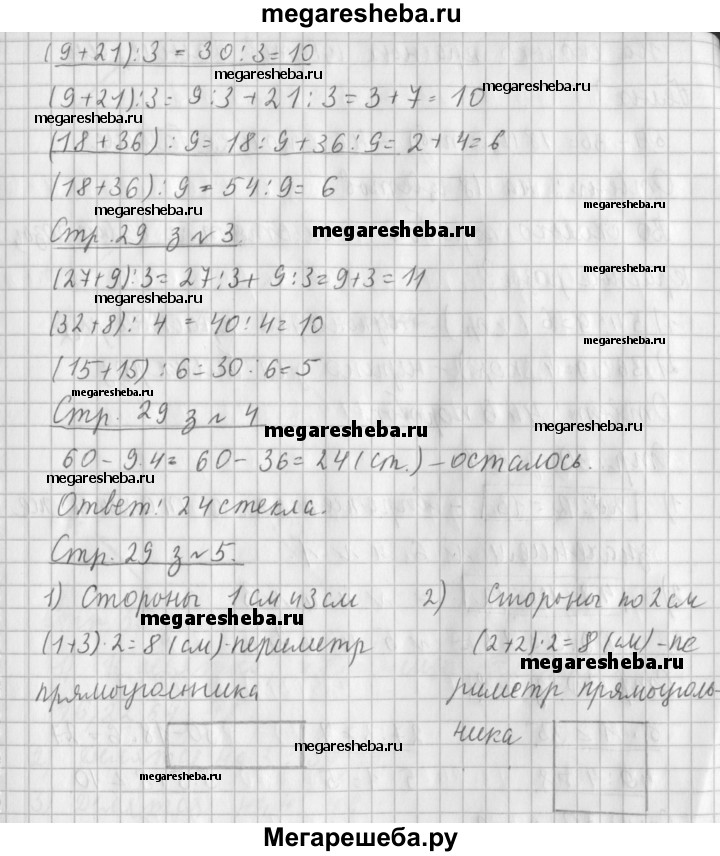 megaresheba.ru
(9+21):3 = 30:3=10
megaresheba.ru
(9+21):3= 9:3+21:3=3+7=10
megaresheba.ru
megaresheba.ru
(18+36):9= 18:9+36:9=2+4=6
(18+36):9=54:9= 6
megaresheba.ru
megaresheba.ru
Стр.29 з №3.
megaresheba.ru
(27+9):3=27:3+9:3=9+3=11
megaresheba.ru
megaresheba.ru
(32+8): 4 = 40:4=10
megaresheba.ru
(15+15):6=30:6=5
megaresheba.ru
Стр. 29 з № 4
megaresheba.ru
megaresheba.ru
60-9·4= 60-36=24(ст.)-осталось.
megaresheba.ru
Ответ: 24 стекла.
Стр. 29 з №5.
1) Стороны 1см и 3см
2) Стороны по 2см
megaresheba.ru
(1+3)·2=8(см)-периметр
прямоуголника
(2+2)·2=8(см)-пе
megaresheba.ru
риметр прямоуголь-
ника
megaresheba.ru
megaresheba.ru
megaresheba.ru
Мегарешеба.ру